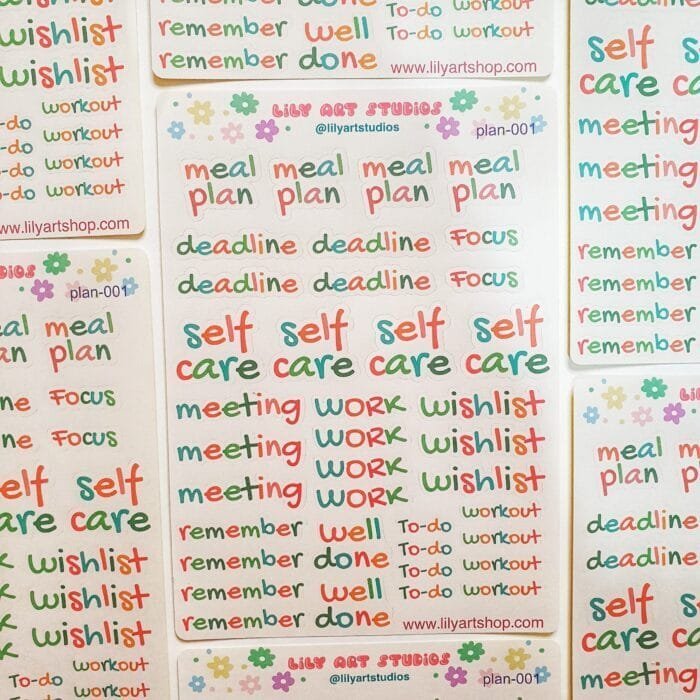 wishlist
wishlist
To-do workout
workout
workout
workout
www.lilyartshop.com
remember well To-do workout
remember done
www.lilyartshop.com
self
care
meeting
meeting
meeting
remember
remember
remember
remember
LILY ART STUDIOS
@lilyartstudios
plan-001
meal plan meal plan meal plan meal plan
deadline deadline FOCUS
deadline deadline FOCUS
self care self care self care self care
meeting WORK wishlist
meeting WORK wishlist
WORK
meeting WORK wishlist
remember well To-do workout
remember done To-do workout
remember well To-do workout
remember done To-do workout
www.lilyartshop.com
plan-001
meal
plan
FOCUS
FOCUS
self
care
wishlist
wishlist
wishlist
To-do workout
workout
meal
plan
deadline
deadline
self
care
meeting
meeting
LILY ART STUDIOS
@lilyartstudios
plan-001